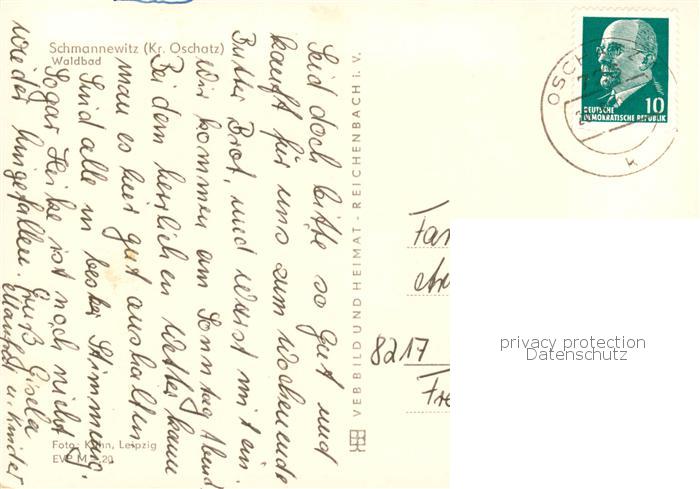 Schmannewitz (Kr. Oschatz)
Waldbad
Seid doch bitte so gut und
kauft für uns zum Wochenende
Butter Brot, und Wurst mit ein
Wir kommen am Sonntag Abend
Bei dem herrlichen Wetter kann
man es hier gut aushalten
Sind alle in bester Stimmung,
Sogar Heike ist noch nicht
wieder hingefallen. Gruß Gisela
Manfred u. Kinder
Foto: Kühn, Leipzig
EVP M 0,20
VEB BILD UND HEIMAT - REICHENBACH i. V.
OSCH
10
DEUTSCHE
DEMOKRATISCHE REPUBLIK
k
Fam
8217
Fre
privacy protection
Datenschutz